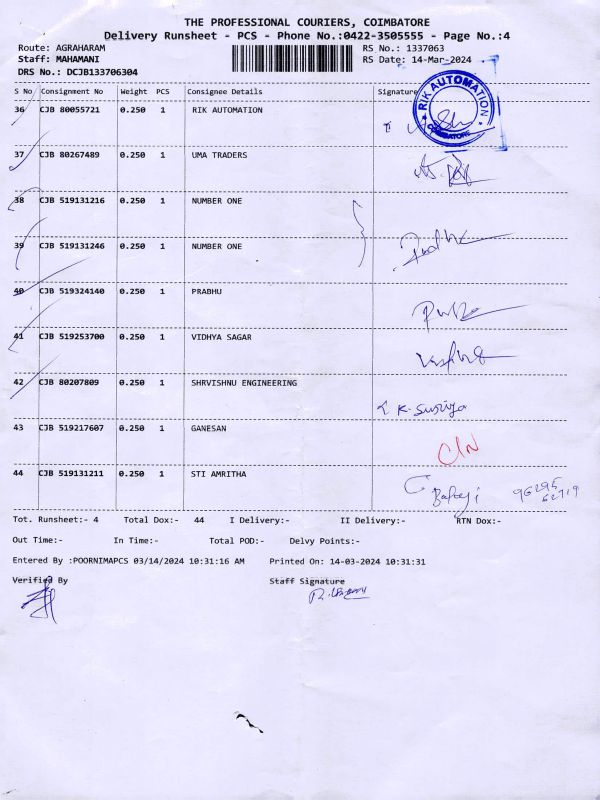 THE PROFESSIONAL COURIERS, COIMBATORE
Delivery Runsheet - PCS - Phone No.:0422-3505555 - Page No.:4
Route: AGRAHARAM RS No.: 1337063
Staff: MAHAMANI RS Date: 14-Mar-2024
DRS No.: DCJB133706304
S No Consignment No Weight PCS Consignee Details Signature
36 CJB 80055721 0.250 1 RIK AUTOMATION
RIK AUTOMATION COIMBATORE
37 CJB 80267489 0.250 1 UMA TRADERS
38 CJB 519131216 0.250 1 NUMBER ONE
39 CJB 519131246 0.250 1 NUMBER ONE
40 CJB 519324140 0.250 1 PRABHU
41 CJB 519253700 0.250 1 VIDHYA SAGAR
42 CJB 80207809 0.250 1 SHRVISHNU ENGINEERING
K. Suriya
43 CJB 519217607 0.250 1 GANESAN
C/N
44 CJB 519131211 0.250 1 STI AMRITHA
Tot. Runsheet:- 4 Total Dox:- 44 I Delivery:- II Delivery:- RTN Dox:-
Out Time:- In Time:- Total POD:- Delvy Points:-
Entered By :POORNIMAPCS 03/14/2024 10:31:16 AM Printed On: 14-03-2024 10:31:31
Verified By Staff Signature